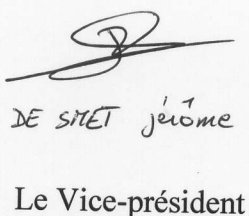 DE SMET jérôme
Le Vice-président